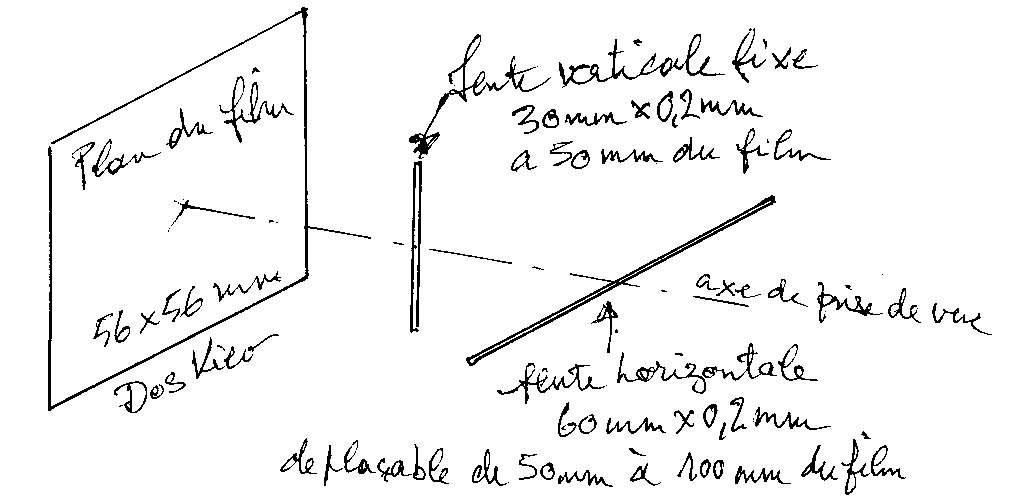 Plan du film
56x56 mm
Dos Kiev
fente verticale fixe
30mm x 0,2mm
a 50mm du film
axe de prise de vue
fente horizontale
60mm x 0,2mm
deplaçable de 50mm à 100mm du film